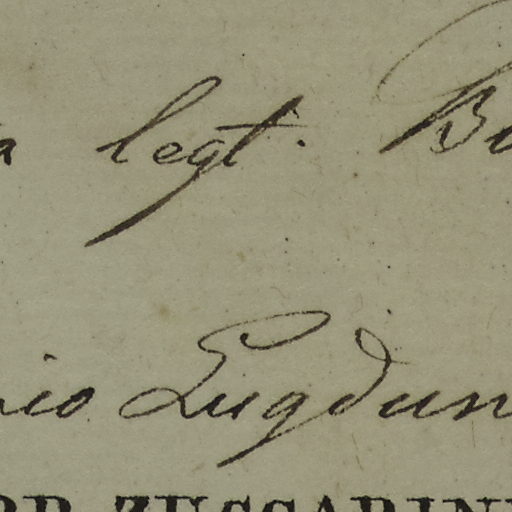 a legt. Bo
nico Lugdun
RR ZUCCARINI